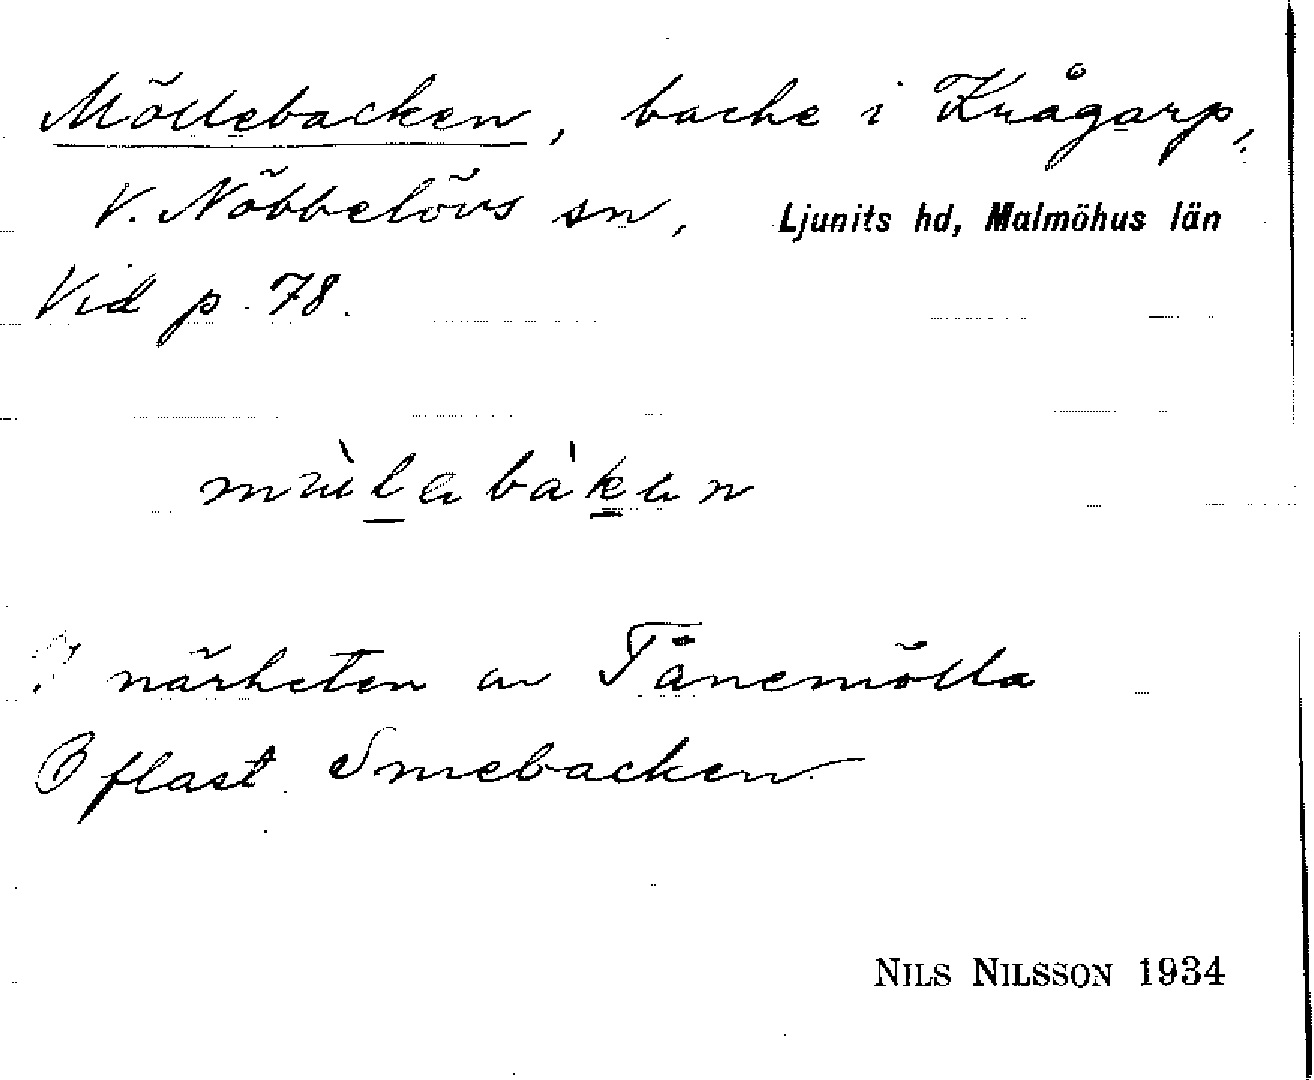 Möllebacken, backe i Krågarp,
V. Nöbbelövs sn, Ljunits hd, Malmöhus län
Vid p. 78.
I närheten av Tånemölla
Oftast Smebacken
NILS NILSSON 1934